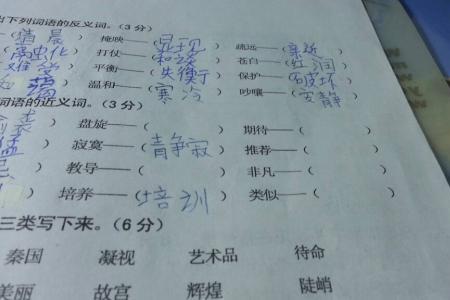 出下列词语的反义词。（3分）
清晨） 掩映——（显现） 疏远——（亲近
打仗——（和谈） 苍白——（红润
难受 平衡——（失衡） 保护——（破坏
温和——（寒冷 吵嚷——（安静
词语的近义词。（3分）
） 盘旋——（ ） 期待——（
） 寂寞——（ 寂 推荐——（
） 教导——（ ） 非凡——（
） 培养——（培训） 类似——（ ）
三类写下来。（6分）
秦国 凝视 艺术品 待命
美丽 故宫 辉煌 陡峭